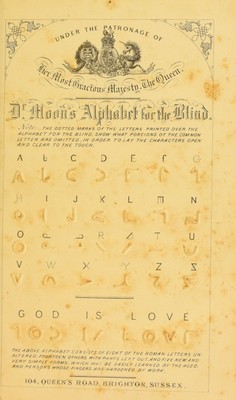 UNDER THE PATRONAGE OF
Her Most Gracious Majesty, The Queen.
Dr. Moon's Alphabet for the Blind.
Note. THE DOTTED MARKS OF THE LETTERS PRINTED OVER THE
ALPHABET FOR THE BLIND, SHOW WHAT PORTIONS OF THE COMMON
LETTER ARE OMITTED, IN ORDER TO LAY THE CHARACTERS OPEN
AND CLEAR TO THE TOUCH.
A B C D E F G
H I J K L M N
O P Q R S T U
V W X Y Z
GOD IS LOVE
THE ABOVE ALPHABET CONSISTS OF EIGHT OF THE ROMAN LETTERS UN-
ALTERED, FOURTEEN OTHERS WITH PARTS LEFT OUT, AND FIVE NEW AND
VERY SIMPLE FORMS, WHICH MAY BE EASILY LEARNED BY THE AGED,
AND PERSONS WHOSE FINGERS ARE HARDENED BY WORK.
104, QUEEN'S ROAD, BRIGHTON, SUSSEX.